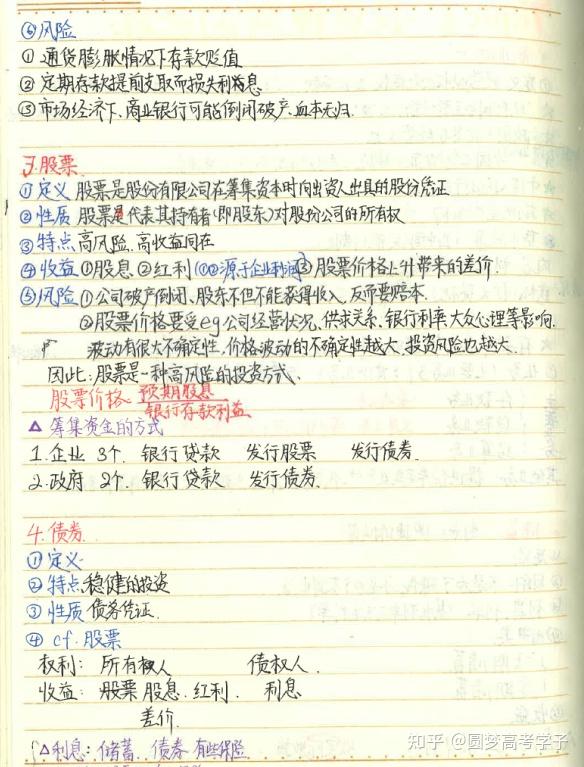 ⑥风险
① 通货膨胀情况下存款贬值
② 定期存款提前支取而损失利息
③ 市场经济下、商业银行可能倒闭破产、血本无归.
3.股票
①定义 股票是股份有限公司在筹集资本时向出资人出具的股份凭证
②性质 股票是代表其持有者(即股东)对股份公司的所有权
③特点 高风险、高收益同在
④收益 ①股息 ②红利 (①②源于企业利润) ③股票价格上升带来的差价.
⑤风险 ①公司破产倒闭、股东不但不能获得收入、反而要赔本.
②股票价格要受eg公司经营状况、供求关系、银行利率、大众心理等影响.
波动有很大不确定性,价格波动的不确定性越大、投资风险也越大.
因此:股票是一种高风险的投资方式.
股票价格= 预期股息
银行存款利益
△ 筹集资金的方式
1.企业 3个. 银行贷款 发行股票 发行债券.
2.政府 2个. 银行贷款 发行债券.
4.债券
①定义.
②特点 稳健的投资
③性质 债务凭证.
④cf.股票
权利: 所有权人 债权人.
收益: 股票 股息.红利. 利息
差价.
△利息: 储蓄、债券 有些保险
知乎 @圆梦高考学子